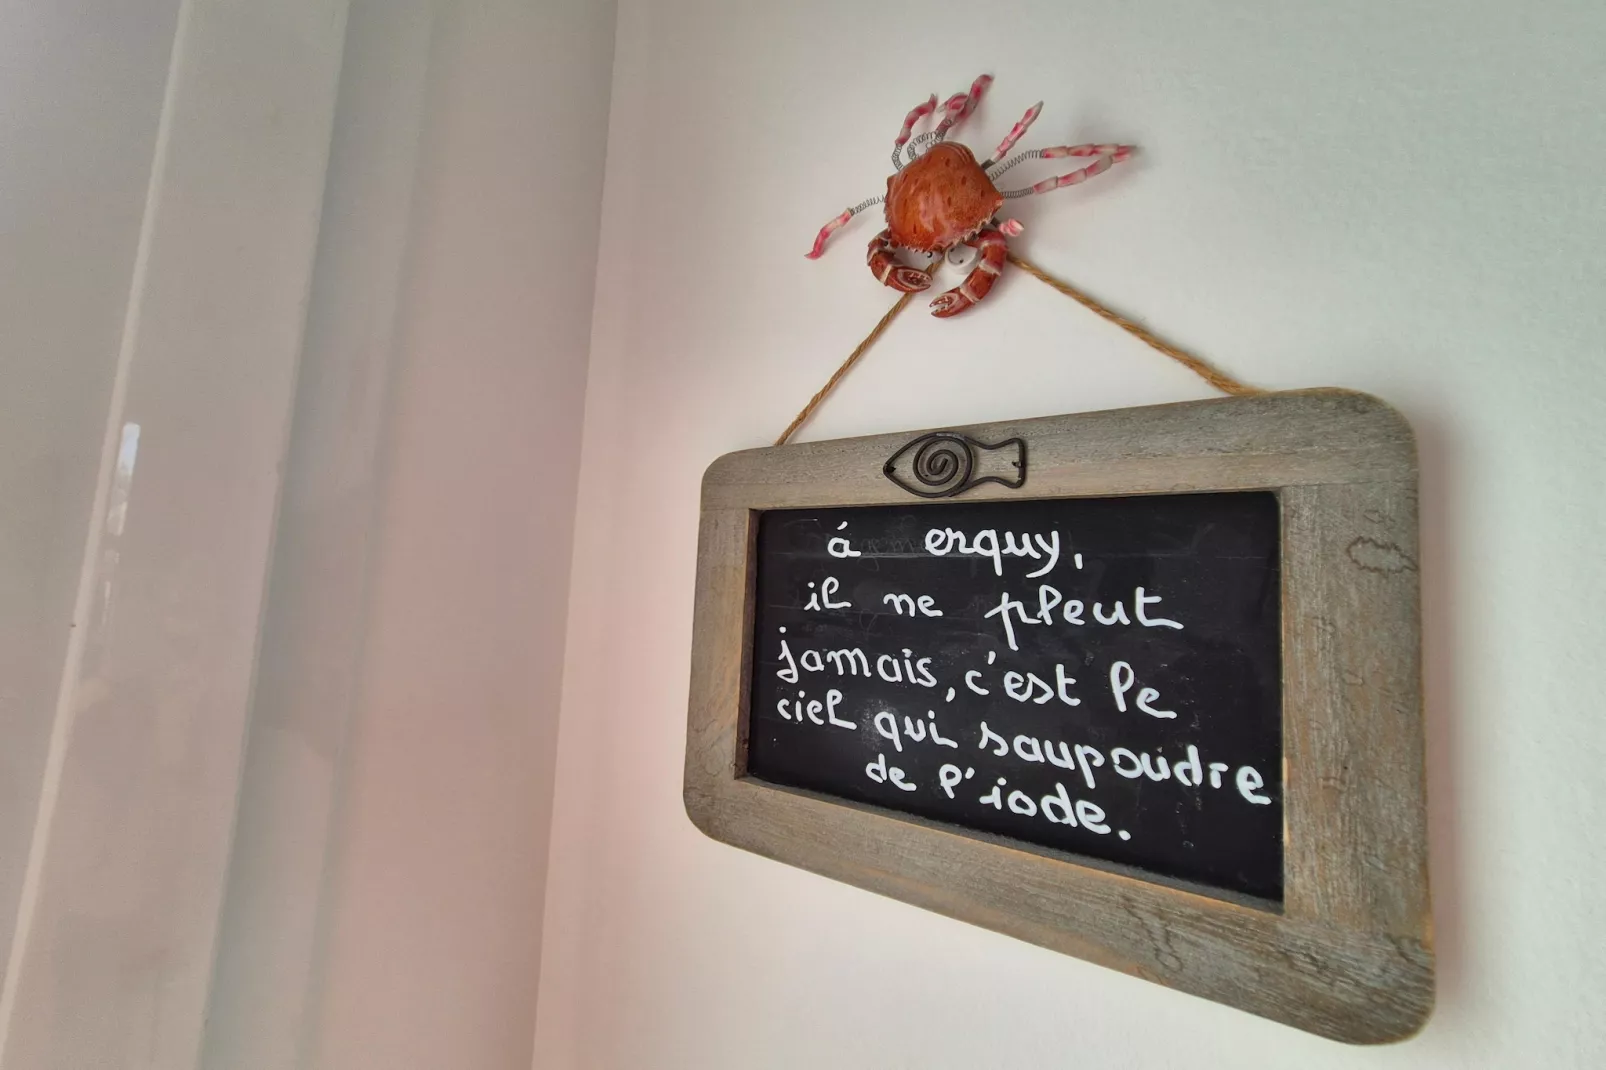 á erquy,
il ne pleut
jamais, c'est le
ciel qui saupoudre
de l'iode.